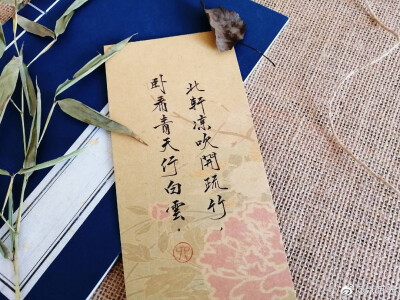 此轩凉吹開疏竹，
卧看青天行白雲。